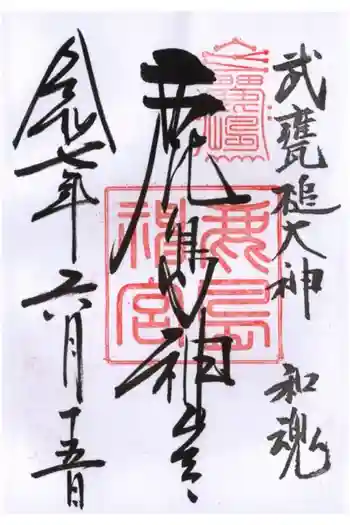 武甕槌大神 和魂
鹿島神宮
令和七年六月十五日
鹿島
神宮